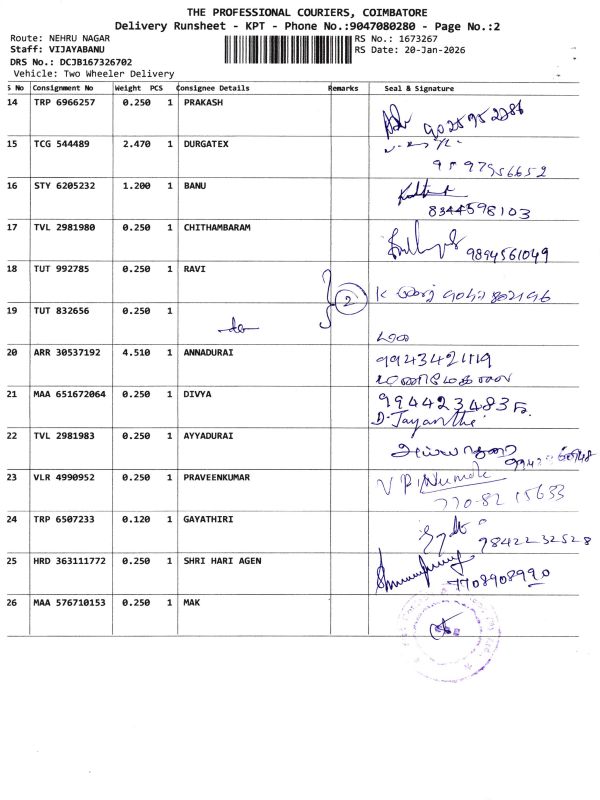 THE PROFESSIONAL COURIERS, COIMBATORE
Delivery Runsheet - KPT - Phone No.:9047080280 - Page No.:2
Route: NEHRU NAGAR
RS No.: 1673267
Staff: VIJAYABANU
RS Date: 20-Jan-2026
DRS No.: DCJB167326702
Vehicle: Two Wheeler Delivery
S No Consignment No Weight PCS Consignee Details Remarks Seal & Signature
14 TRP 6966257 0.250 1 PRAKASH
15 TCG 544489 2.470 1 DURGATEX
9597956652
16 STY 6205232 1.200 1 BANU
8344598103
17 TVL 2981980 0.250 1 CHITHAMBARAM
9894561049
18 TUT 992785 0.250 1 RAVI
2
19 TUT 832656 0.250 1
20 ARR 30537192 4.510 1 ANNADURAI
மணிமேகலை
21 MAA 651672064 0.250 1 DIVYA
9944234835
D. Jayanthi
22 TVL 2981983 0.250 1 AYYADURAI
அய்யாதுரை
23 VLR 4990952 0.250 1 PRAVEENKUMAR
770-82 15633
24 TRP 6507233 0.120 1 GAYATHIRI
9842232528
25 HRD 363111772 0.250 1 SHRI HARI AGEN
7708908990
26 MAA 576710153 0.250 1 MAK